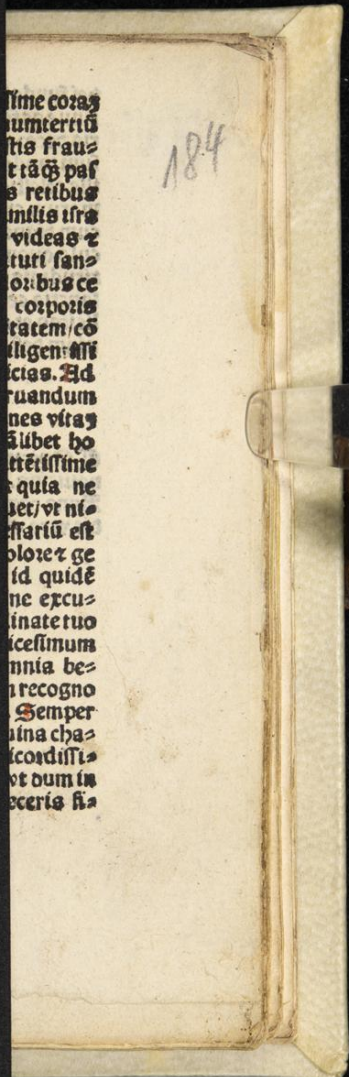 184
ſime coraȝ
umtertiū
ſtis frau⸗
t tāq̄ꝫ paſ
s retibus
milis iſra
videas ⁊
tuti ſan⸗
oribus ce
corporis
tatem/cō
iligentiſſi
icias. Ad
ruandum
nes vitaȝ
ālibet ho
ttētiſſime
quia ne
uet/vt ni⸗
eſſariū eſt
olore ⁊ ge
id quidē
ne excu⸗
inate tuo
iceſimum
mnia be⸗
recogno
. Semper
uina cha⸗
icordiſſi⸗
vt dum in
eceris ſi⸗